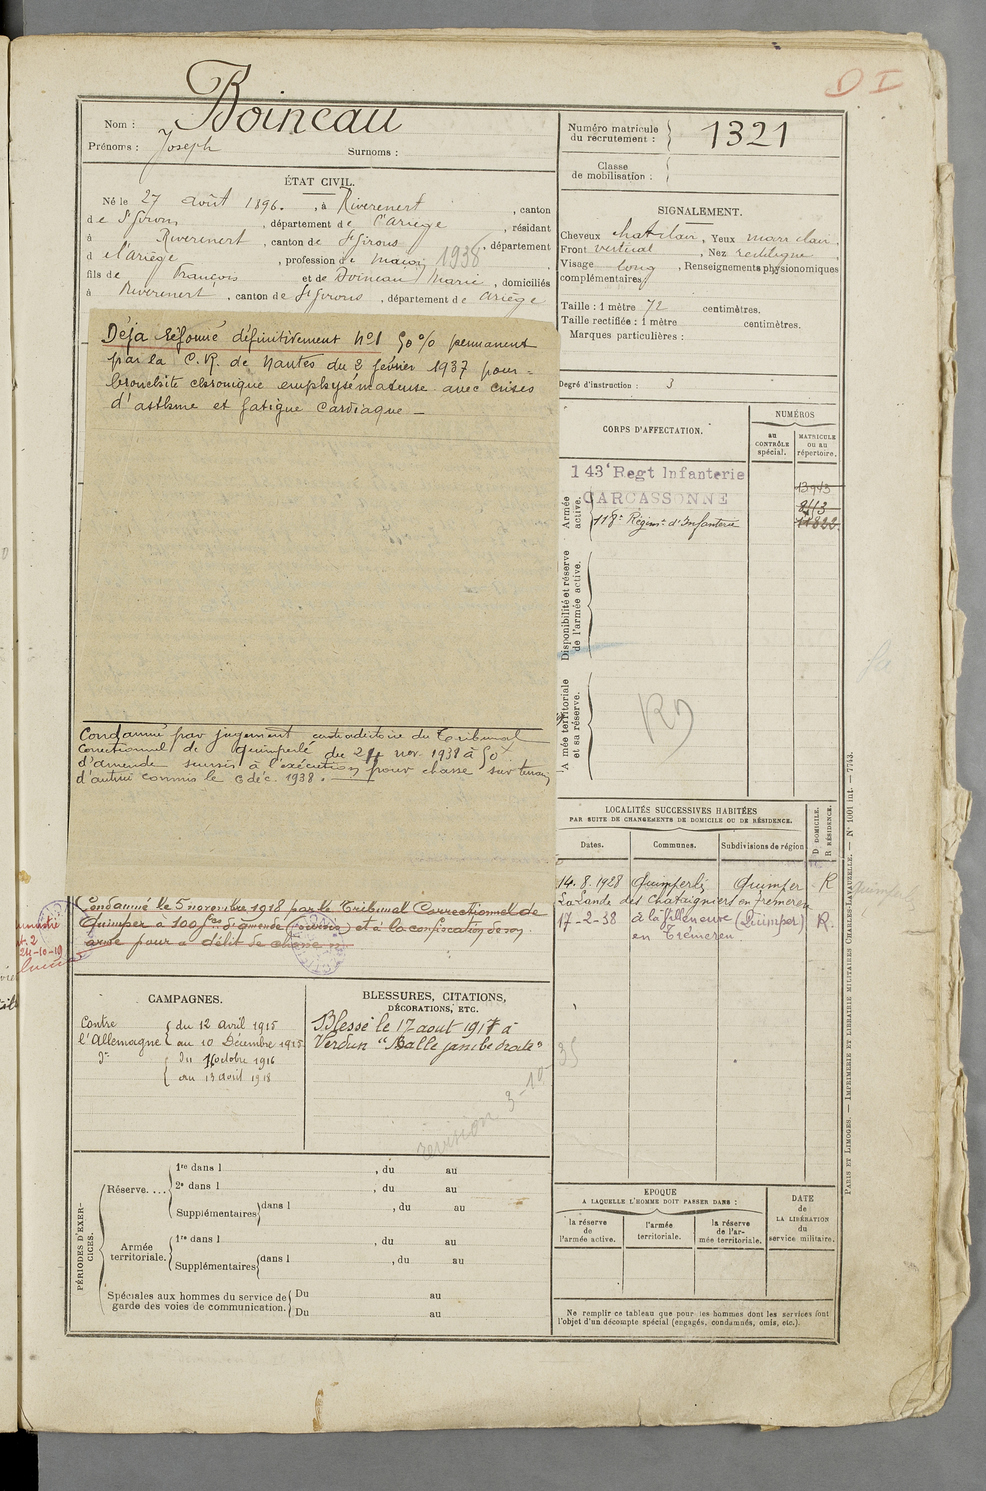 D I
Nom : Boineau
Prénoms : Joseph Surnoms :
Numéro matricule du recrutement : 1321
Classe de mobilisation :
ÉTAT CIVIL.
Né le 27 août 1896. , à Riverenert , canton
de St Girons , département de l'Ariège , résidant
à Riverenert , canton de St Girons , département
d l'Ariège , profession de maçon 1938
fils de François et de Boineau Marie , domiciliés
à Riverenert , canton de St Girons , département de Ariège
SIGNALEMENT.
Cheveux chat clair , Yeux marr clair ,
Front vertical , Nez rectiligne ,
Visage long , Renseignements physionomiques
complémentaires,
Taille : 1 mètre 72 centimètres.
Taille rectifiée : 1 mètre centimètres.
Marques particulières :
Degré d'instruction : 3
Déja réformé définitivement No1 50% permanent
par la C.R. de Nantes du 2 février 1937 pour =
bronchite chronique emphysémateuse avec crises
d'asthme et fatigue cardiaque —
Condamné par jugement contradictoire du Tribunal
Correctionnel de Quimperlé du 24 nov. 1938 à 50 x
d'amende sursis à l'exécution pour chasse sur terrain
d'autrui commis le 6 déc. 1938.
Condamné le 5 novembre 1918 par le Tribunal Correctionnel de
Quimper à 100 frs d'amende et à la confiscation de son
arme pour a délit de chasse »
24-10-19
CORPS D'AFFECTATION.
NUMÉROS
au CONTRÔLE spécial.
MATRICULE ou au répertoire.
Armée active.
143e Regt Infanterie
CARCASSONNE
118e Régimt d'Infanterie
13943
8413
11822
Disponibilité et réserve de l'armée active.
Armée territoriale et sa réserve.
RD
LOCALITÉS SUCCESSIVES HABITÉES
PAR SUITE DE CHANGEMENTS DE DOMICILE OU DE RÉSIDENCE.
D. DOMICILE.
R. RÉSIDENCE.
Dates. Communes. Subdivisions de région
14. 8. 1928 Quimperlé Quimper R
La Lande des Chataigniers en Trémeven
17-2-38 à la Villeneuve (Quimper) R.
en Trémeven
CAMPAGNES.
Contre l'Allemagne { du 12 avril 1915
au 10 Décembre 1915
do { du 1 octobre 1916
au 13 avril 1918
BLESSURES, CITATIONS,
DÉCORATIONS, ETC.
Blessé le 17 aout 1917 à
Verdun "Balle jambe droite"
revision 3-10-35
PÉRIODES D'EXERCICES.
Réserve....
1re dans l , du au
2e dans l , du au
Supplémentaires dans l , du au
Armée territoriale.
1re dans l , du au
Supplémentaires dans l , du au
Spéciales aux hommes du service de
garde des voies de communication.
Du au
Du au
EPOQUE
A LAQUELLE L'HOMME DOIT PASSER DANS :
la réserve de l'armée active.
l'armée territoriale.
la réserve de l'armée territoriale.
DATE de LA LIBÉRATION du service militaire.
Ne remplir ce tableau que pour les hommes dont les services font
l'objet d'un décompte spécial (engagés, condamnés, omis, etc.).
PARIS ET LIMOGES. — IMPRIMERIE ET LIBRAIRIE MILITAIRES CHARLES LAVAUZELLE. — N° 1001 int. — 7743.